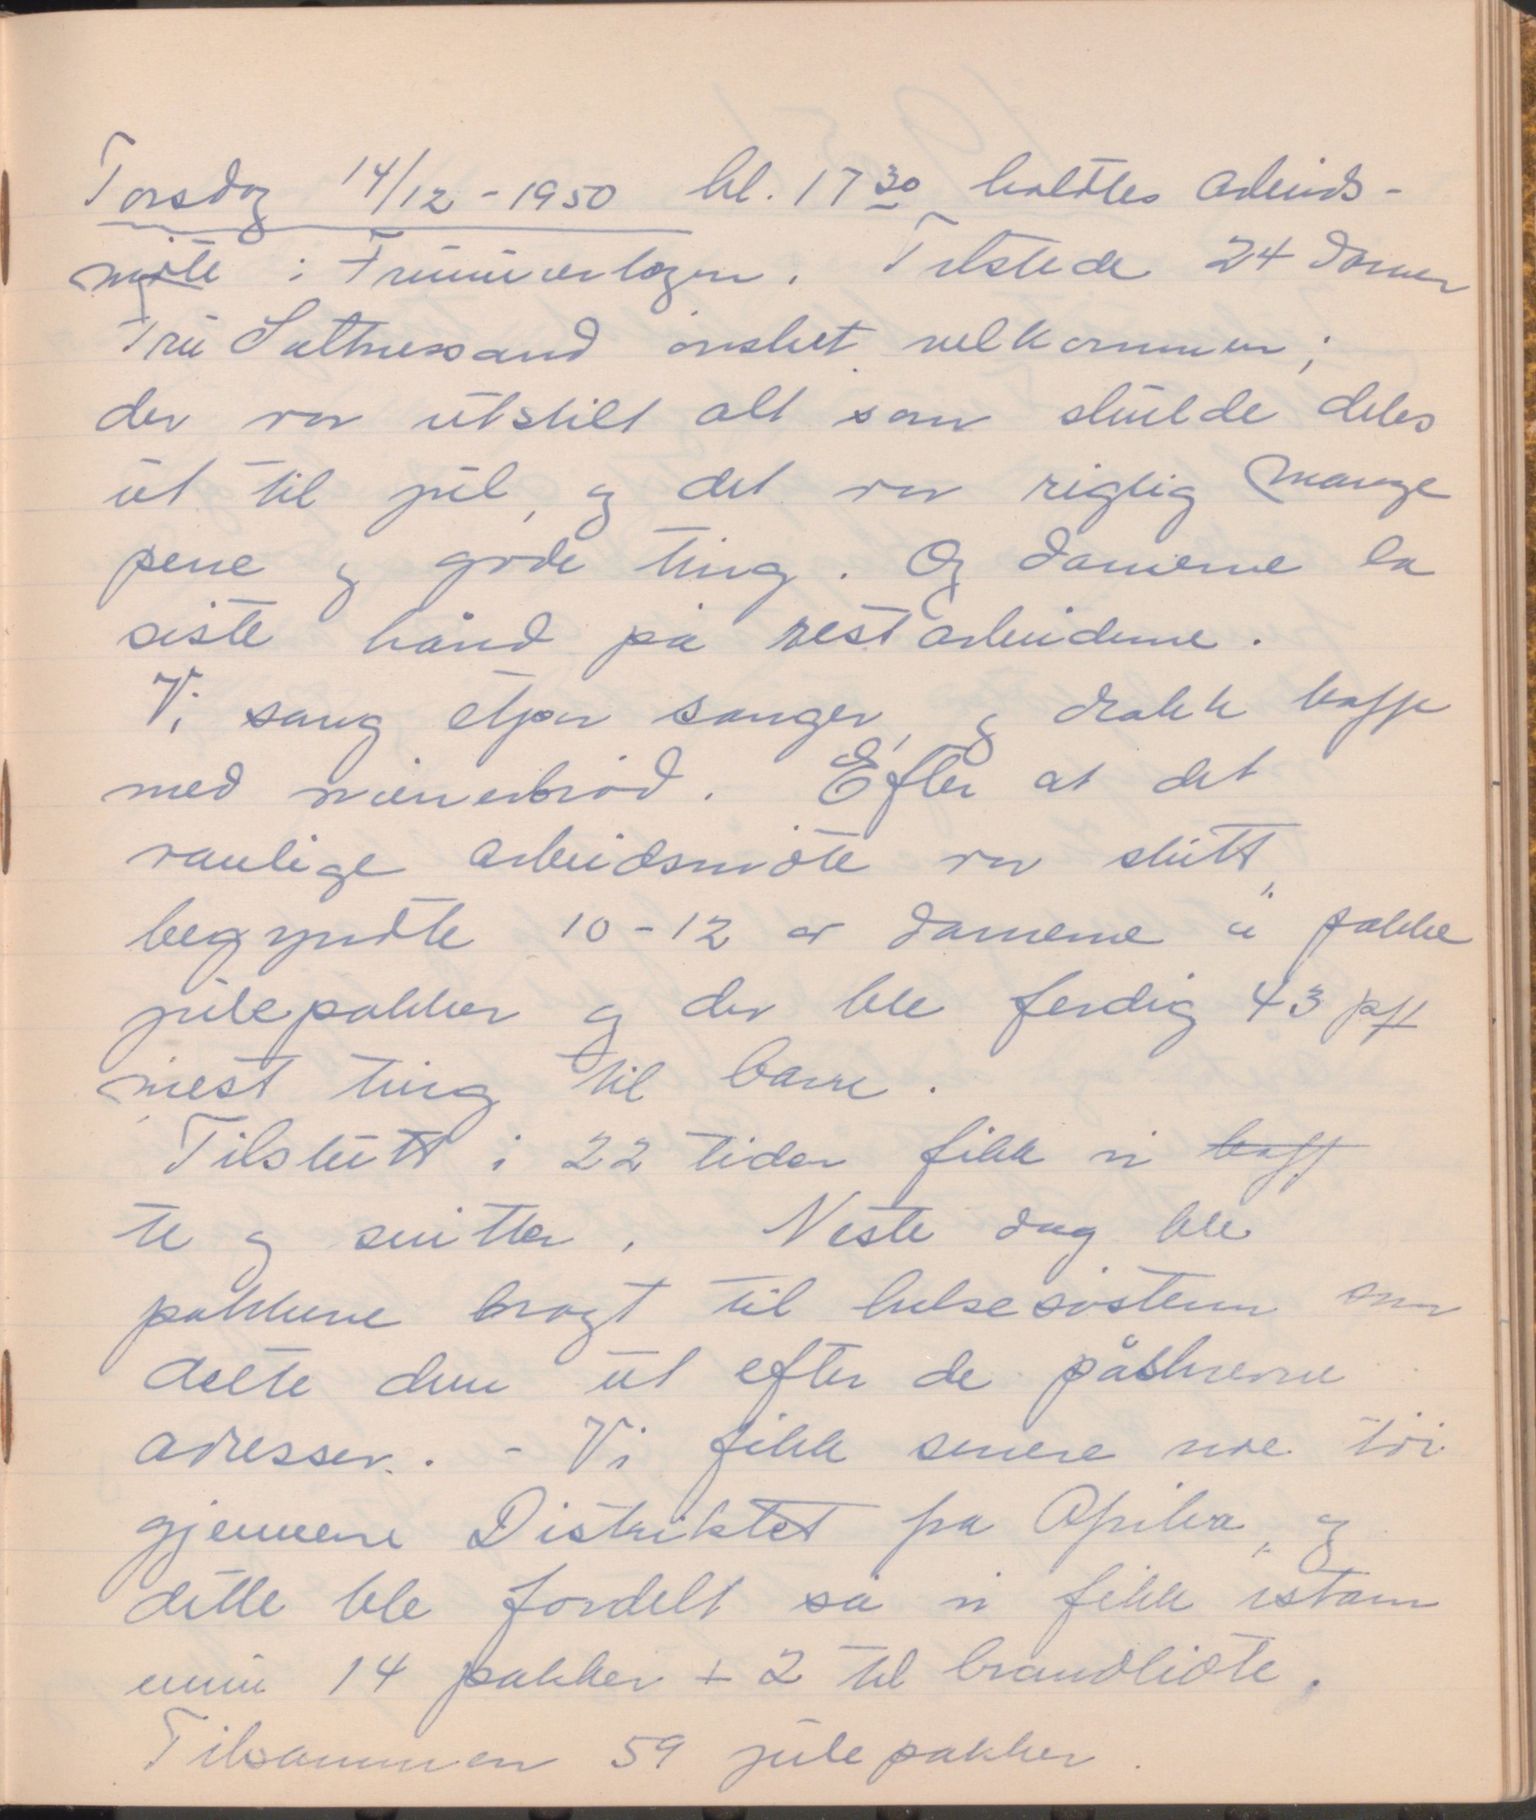 Torsdag 14/12 - 1950 kl. 17 30 holdtes arbeids-
møte i Frimurerlogen. Tilstede 24 damer
Fru Sattnessand ønsket velkommen;
der var utstilt alt som skulde deles
ut til jul, og det var rigtig mange
pene og gode ting. Og damerne la
siste hånd på restarbeiderne.
Vi sang etpar sanger, og drakk kaffe
med wienerbrød. Efter at det
vanlige arbeidsmøte var slutt,
begyndte 10-12 av damerne å pakke
julepakker og der ble ferdig 43 pkt
mest ting til barn.
Tilslutt i 22 tiden fikk vi kaff
te og snitter. Neste dag ble
pakkene bragt til helsesøsteren som
delte dem ut efter de påskrevne
adresser. - Vi fikk senere noe tøi
gjennem Distriktet fra Afrika, og
dette ble fordelt så vi fikk istand
ennu 14 pakker + 2 til brandlidte.
Tilsammen 59 julepakker.